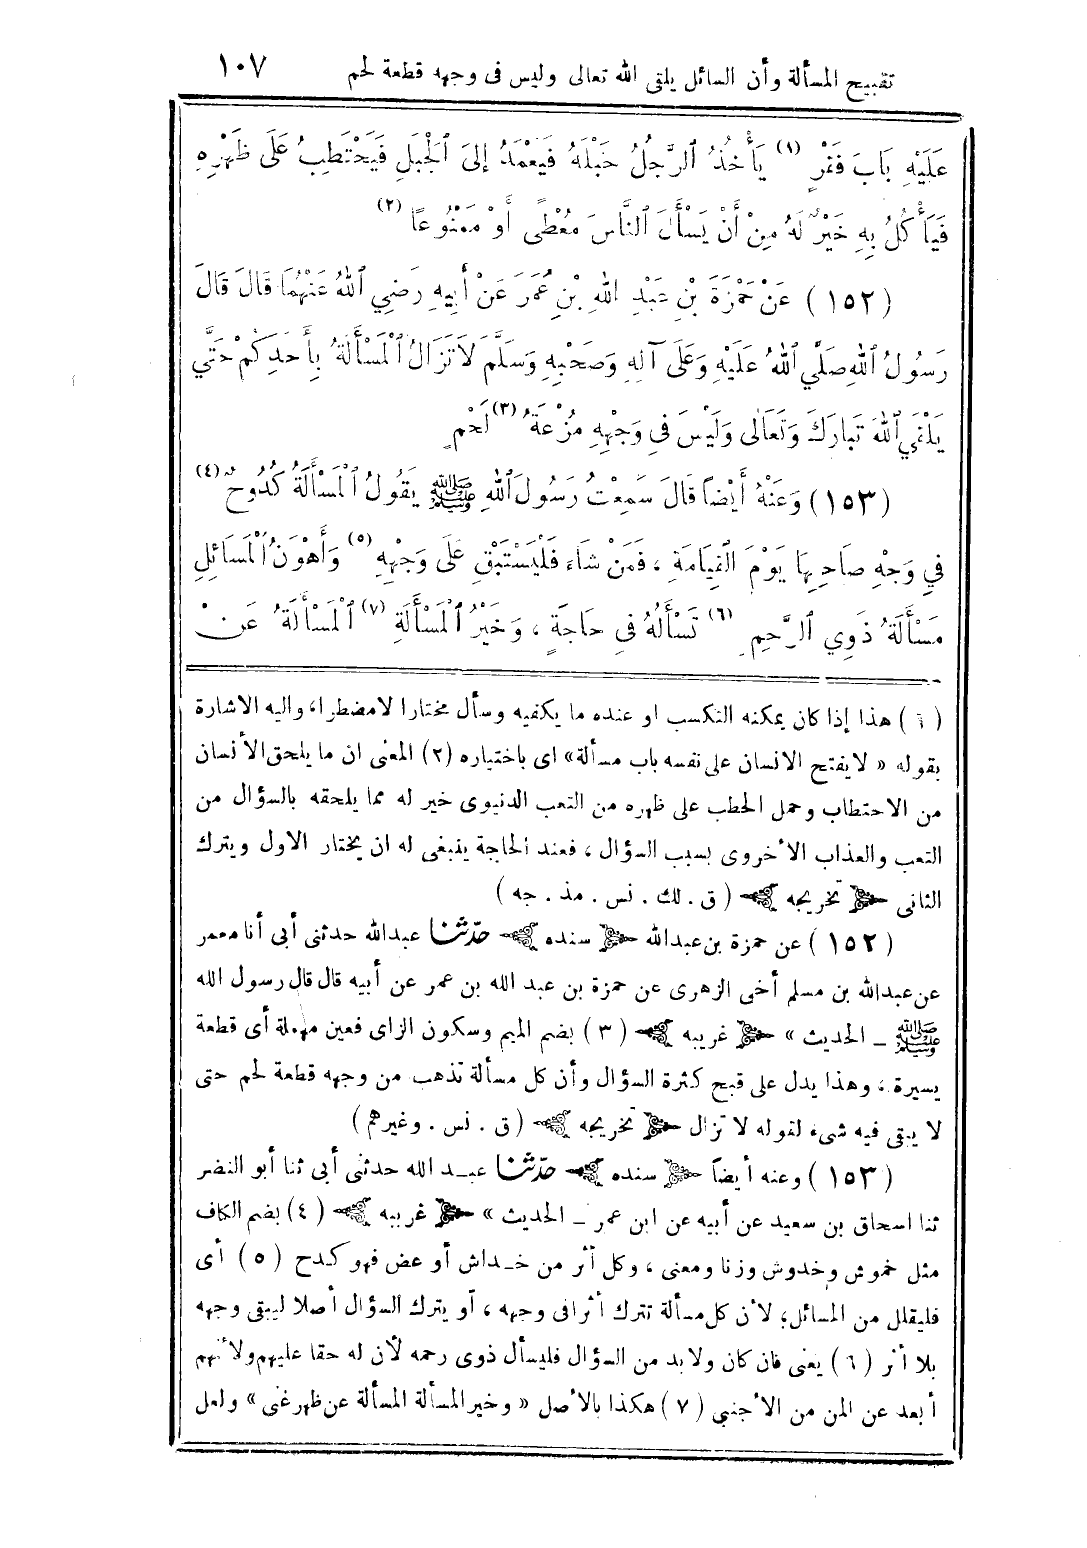 تقبيح المسألة وأن السائل يلقى الله تعالى وليس فى وجهه قطعة لحم ١٠٧
عَلَيْهِ بَابَ فَقْرٍ (١) يَأْخُذُ ٱلرَّجُلُ حَبْلَهُ فَيَعْمَدُ إِلَى ٱلْجَبَلِ فَيَحْتَطِبُ عَلَى ظَهْرِهِ
فَيَأْكُلُ بِهِ خَيْرٌ لَهُ مِنْ أَنْ يَسْأَلَ ٱلنَّاسَ مُعْطًى أَوْ مَمْنُوعًا (٢)
(١٥٢) عَنْ حَمْزَةَ بْنِ عَبْدِ اللهِ بْنِ عُمَرَ عَنْ أَبِيهِ رَضِي ٱللهُ عَنْهُمَا قَالَ قَالَ
رَسُولُ ٱللهِ صَلَّي ٱللهُ عَلَيْهِ وَعَلَى آلِهِ وَصَحْبِهِ وَسَلَّمَ لَا تَزَالُ ٱلْمَسْأَلَةُ بِأَحَدِكُمْ حَتَّي
يَلْقَي ٱللهَ تَبَارَكَ وَتَعَالَى وَلَيْسَ فِي وَجْهِهِ مُزْعَةُ (٣) لَحْمٍ
(١٥٣) وَعَنْهُ أَيْضاً قَالَ سَمِعْتُ رَسُولَ ٱللهِ ﷺ يَقُولُ ٱلْمَسْأَلَةُ كُدُوحٌ (٤)
فِي وَجْهِ صَاحِبِهَا يَوْمَ ٱلْقِيَامَةِ ، فَمَنْ شَاءَ فَلْيَسْتَبْقِ عَلَى وَجْهِهِ (٥) وَأَهْوَنُ ٱلْمَسَائِلِ
مَسْأَلَةُ ذَوِي ٱلرَّحِمِ (٦) تَسْأَلُهُ فِي حَاجَةٍ ، وَخَيْرُ ٱلْمَسْأَلَةِ (٧) ٱلْمَسْأَلَةُ عَنْ
(١) هذا إذا كان يمكنه التكسب او عنده ما يكفيه وسأل مختارا لامضطرا، واليه الاشارة
بقوله « لا يفتح الانسان على نفسه باب مسألة» اى باختياره (٢) المعنى ان ما يلحق الأنسان
من الاحتطاب وحمل الحطب على ظهره من التعب الدنيوى خير له مما يلحقه بالسؤال من
التعب والعذاب الأخروى بسبب السؤال ، فعند الحاجة ينبغى له ان يختار الاول ويترك
الثانى تخريجه (ق . لك . نس . مذ . جه)
(١٥٢) عن حمزة بن عبدالله سنده حدّثنا عبدالله حدثنى أبى أنا معمر
عن عبدالله بن مسلم أخى الزهرى عن حمزة بن عبد الله بن عمر عن أبيه قال قال رسول الله
ﷺ ــ الحديث » غريبه (٣) بضم الميم وسكون الزاى فعين مهملة أى قطعة
يسيرة ، وهذا يدل على قبح كثرة السؤال وأن كل مسألة تذهب من وجهه قطعة لحم حتى
لا يبقى فيه شىء لقوله لا تزال تخريجه (ق . نس . وغيرهم)
(١٥٣) وعنه أيضاً سنده حدّثنا عبد الله حدثنى أبى ثنا أبو النضر
ثنا اسحاق بن سعيد عن أبيه عن ابن عمر ــ الحديث » غريبه (٤) بضم الكاف
مثل خموش وخدوش وزنا ومعنى ، وكل أثر من خداش أو عض فهو كدح (٥) أى
فليقلل من المسائل؛ لأن كل مسألة تترك أثرا فى وجهه ، أو يترك السؤال أصلا ليبقى وجهه
بلا أثر (٦) يعنى فان كان ولابد من السؤال فليسأل ذوى رحمه لأن له حقا عليهم ولأنهم
أبعد عن المن من الأجنبى (٧) هكذا بالأصل « وخير المسألة المسألة عن ظهر غنى » ولعل